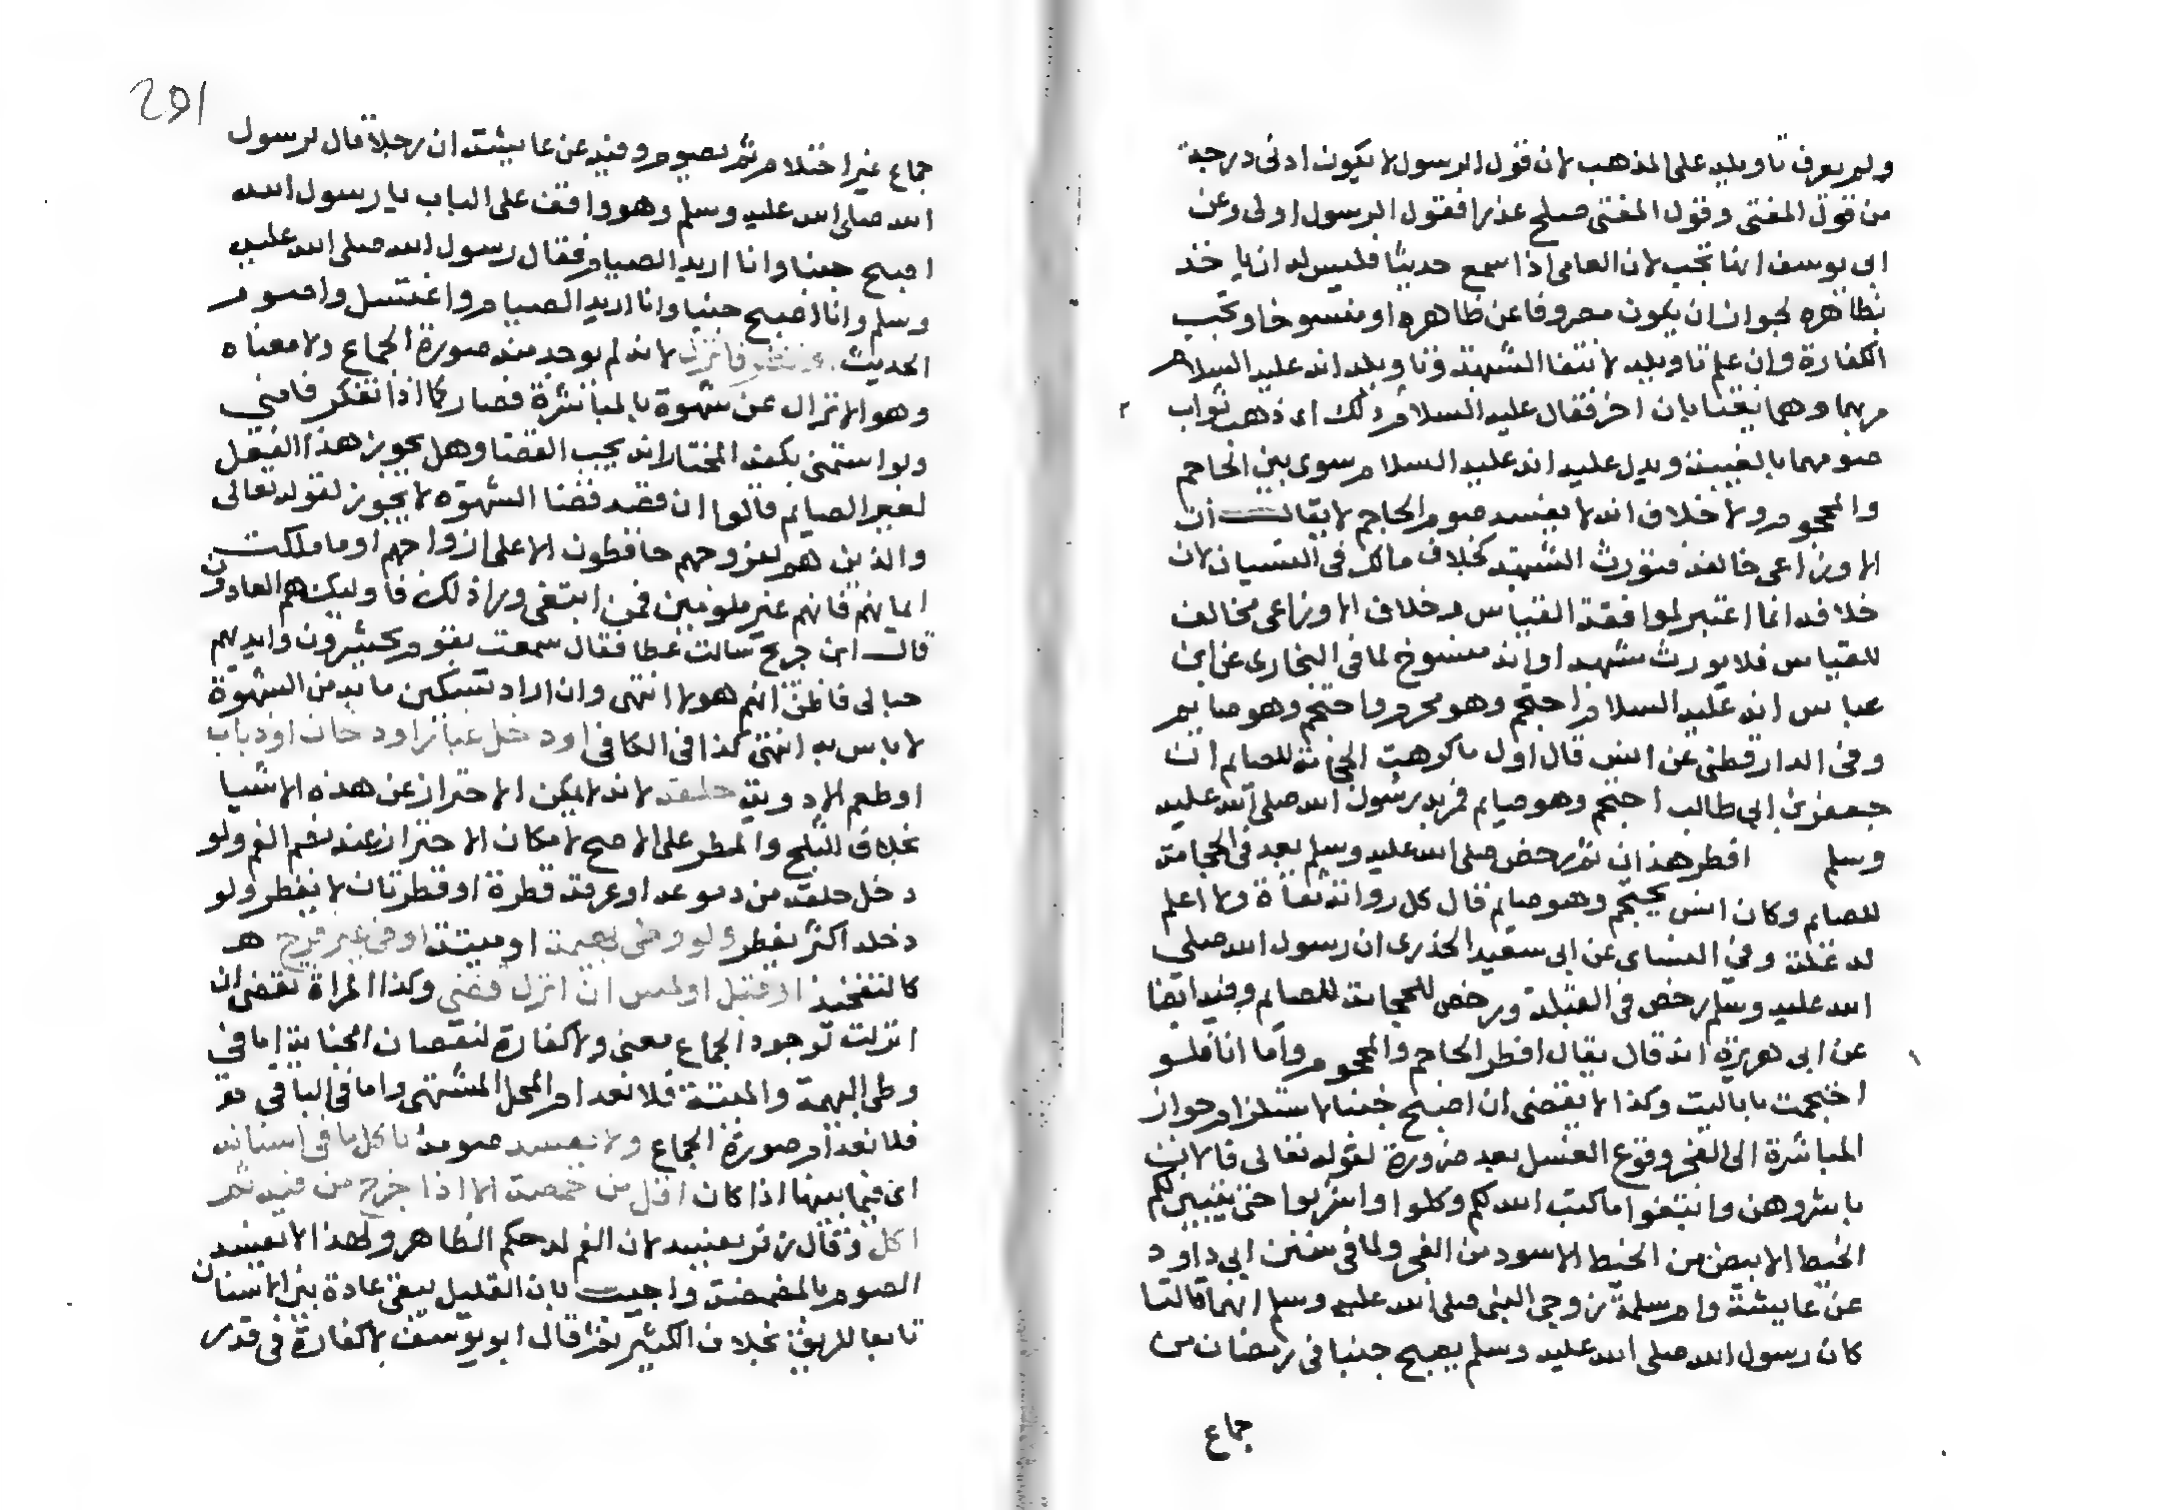 ولم يعرف تاويله على المذهب لان قول الرسول لا يكون ادنى درجة
من قول المفتى وقول المفتى صلح عذرا فقول الرسول اولى وعن
ابى يوسف انها تجب لان العامى اذا سمع حديثا فليس له ان ياخذ
بظاهره لجواز ان يكون مصروفا عن ظاهره او منسوخا وتجب
الكفارة وان علم تاويله لانتفا الشبهة وتاويله انه عليه السلام
مر بهما وهما يغتابان اخر فقال عليه السلام ذلك اى ذهب ثواب
صومهما بالغيبة ويدل عليه انه عليه السلام سوى بين الحاجم
والمحجوم ولا خلاف انه لا يفسد صوم الحاجم لا يقال ان
الاوزاعى خالفه فتورث الشبهة كخلاف مالك فى النسيان لان
خلافه انما اعتبر لموافقة القياس وخلاف الاوزاعى مخالف
للقياس فلا يورث شبهة او انه منسوخ لما فى البخارى عن ابن
عباس انه عليه السلام احتجم وهو محرم واحتجم وهو صايم
وفى الدارقطنى عن انس قال اول ما كرهت الحجامة للصايم ان
جعفر بن ابى طالب احتجم وهو صايم فمر به رسول الله صلى الله عليه
وسلم افطر هذان ثم رخص صلى الله عليه وسلم بعد فى الحجامة
للصايم وكان انس يحتجم وهو صايم قال كل رواته ثقاة ولا اعلم
له علة وفى النساى عن ابى سعيد الخذرى ان رسول الله صلى
الله عليه وسلم رخص فى القبلة ورخص للحجامة للصايم وفيه ايضا
عن ابى هريرة انه قال يقال افطر الحاجم والمحجوم واما انا فلو
احتجمت ما باليت وكذا لا يقضى ان اصبح جنبا لاستلزام جواز
المباشرة الى الفجر وقوع الغسل بعد ضرورة لقوله تعالى فالان
باشروهن وابتغوا ما كتب الله لكم وكلوا واشربوا حتى يتبين لكم
الخيط الابيض من الخيط الاسود من الفجر ولما فى سنن ابى داود
عن عايشة وام سلمة زوجى النبى صلى الله عليه وسلم انهما قالتا
كان رسول الله صلى الله عليه وسلم يصبح جنبا فى رمضان من
جماع
291
جماع غير احتلام ثم يصوم وفيه عن عايشة ان رجلا قال لرسول
الله صلى الله عليه وسلم وهو واقف على الباب يا رسول الله
اصبح جنبا وانا اريد الصيام فقال رسول الله صلى الله عليه
وسلم وانا اصبح جنبا وانا اريد الصيام واغتسل واصوم
الحديث فانزل لانه لم يوجد منه صورة الجماع ولا معناه
وهو الانزال عن شهوة بالمباشرة فصار كما اذا تفكر فامنى
ولو استمنى بكفه المختار انه يجب القضا وهل يجوز هذا الفعل
لغير الصايم قالوا ان قصد قضا الشهوة لا يجوز لقوله تعالى
والذين هم لفروجهم حافظون الا على ازواجهم او ما ملكت
ايمانهم فانهم غير ملومين فمن ابتغى ورا ذلك فاوليك هم العادون
قال ابن جريج سالت عطا فقال سمعت بقوم يحشرون وايديهم
حبالى فاظن انهم هولا انتهى وان اراد تسكين ما به من الشهوة
لا باس به انتهى كذا فى الكافى او دخل غبار او دخان او ذباب
او طعم الادوية حلقه لانه لا يمكن الاحتراز عن هذه الاشيا
بخلاف الثلج والمطر على الاصح لامكان الاحتراز عنه بضم الفم ولو
دخل حلقه من دموعه او عرقه قطرة او قطرتان لا يفطر ولو
دخله اكثر يفطر ولو وطى بهيمة او ميتة او فى غير فرج
كالتفخيذ او قبل او لمس ان انزل قضى وكذا المراة تقضى ان
انزلت لوجود الجماع معنى ولا كفارة لنقصان الجناية اما فى
وطى البهيمة والميتة فلانعدام المحل المشتهى واما فى الباقى
فلانعدام صورة الجماع ولا يفسد صومه باكل ما فى اسنانه
اى فيما بينها اذا كان اقل من حمصة الا اذا خرج من فيه ثم
اكل وقال زفر يفسد لان الفم له حكم الظاهر ولهذا لا يفسد
الصوم بالمضمضة واجيب بان القليل يبقى عادة بين الاسنان
تابعا للريق بخلاف الكثير ثم قال ابو يوسف لا كفارة فى قدر